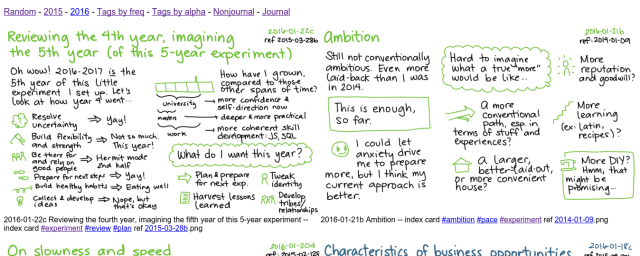 Random - 2015 - 2016 - Tags by freq - Tags by alpha - Nonjournal - Journal
Reviewing the 4th year, imagining
the 5th year (of this 5-year experiment)
2016-01-22c
ref 2015-03-28b
Oh wow! 2016-2017 is the
5th year of this little
experiment I set up. Let's
look at how year 4 went...
Resolve
uncertainty → Yay!
Build flexibility
and strength → Not so much.
This year!
Be there for
and rely on
good people → Hermit mode
2nd half
Prepare for next steps → Yay!
Build healthy habits → Eating well
Collect & develop
ideas → Nope, but
that's okay
How have I grown,
compared to those
other spans of time?
university → more confidence &
self-direction now
→ deeper & more practical
work → more coherent skill
development: JS, SQL
What do I want this year?
Plan & prepare
for next exp.
Tweak
identity
Harvest lessons
learned
Develop
tribes/
relationships
2016-01-22c Reviewing the fourth year, imagining the fifth year of this 5-year experiment --
index card #experiment #review #plan ref 2015-03-28b.png
Ambition
2016-01-21b
ref 2014-01-09
Still not conventionally
ambitious. Even more
laid-back than I was
in 2014.
This is enough,
so far.
I could let
anxiety drive
me to prepare
more, but I think my
current approach is
better.
Hard to imagine
what a true "more"
would be like...
More
reputation
and goodwill?
A more
conventional
path, esp. in
terms of stuff and
experiences?
More
learning
(ex: Latin,
recipes)?
A larger,
better-laid-out,
or more convenient
house?
More DIY?
Hmm, that
might be
promising...
2016-01-21b Ambition -- index card #ambition #pace #experiment ref 2014-01-09.png
On slowness and speed
2016-01-20d
Characteristics of business opportunities
2016-01-18c